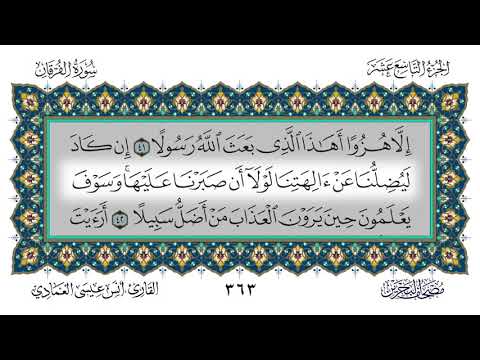 الجزء التاسع عشر
سورة الفرقان
إِلَّا هُزُوًا أَهَٰذَا ٱلَّذِى بَعَثَ ٱللَّهُ رَسُولًا ٤١ إِن كَادَ
لَيُضِلُّنَا عَنْ ءَالِهَتِنَا لَوْلَآ أَن صَبَرْنَا عَلَيْهَا ۚ وَسَوْفَ
يَعْلَمُونَ حِينَ يَرَوْنَ ٱلْعَذَابَ مَنْ أَضَلُّ سَبِيلًا ٤٢ أَرَءَيْتَ
مصحف البحرين
٣٦٣
القارئ انس عيسى العمادي